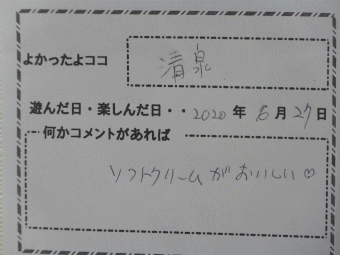 よかったよココ 清泉
遊んだ日・楽しんだ日・・2020年 6月27日
何かコメントがあれば
ソフトクリームがおいしい♡